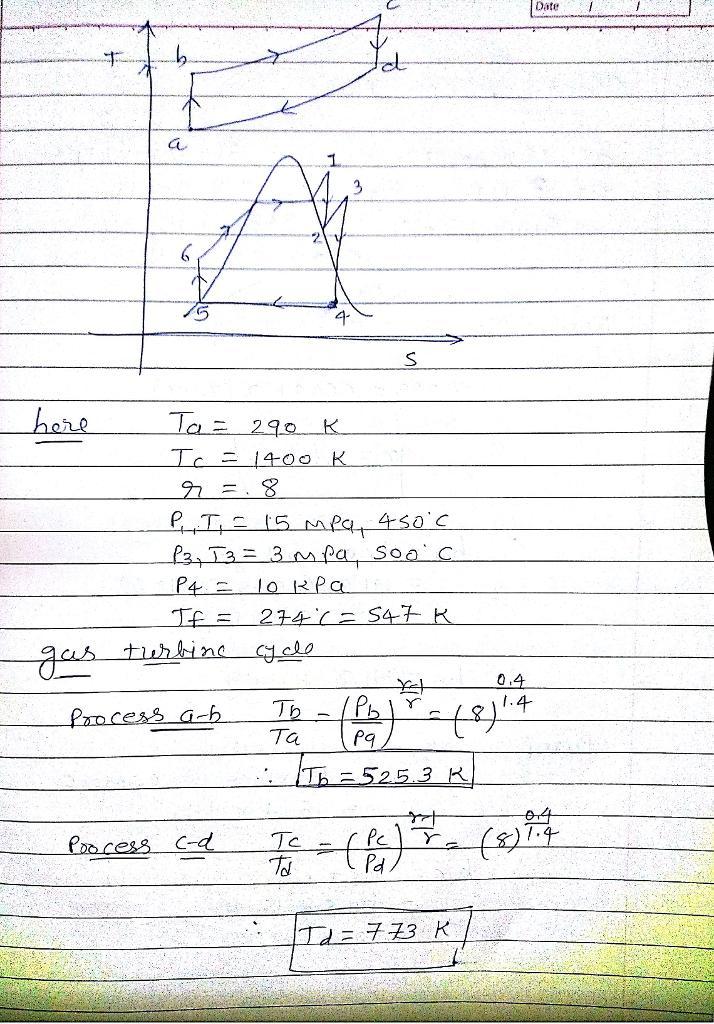 c
Date / /
T b d
a
1
3
2
6
5 4
S
here Ta = 290 K
Tc = 1400 K
r = 8
P1, T1 = 15 mPa, 450°C
P3, T3 = 3 mPa, 500°C
P4 = 10 KPa
Tf = 274°C = 547 K
gas turbine cycle
Process a-b Tb/Ta = (Pb/Pa)^(γ-1/γ) = (8)^(0.4/1.4)
∴ Tb = 525.3 K
Process c-d Tc/Td = (Pc/Pd)^(γ-1/γ) = (8)^(0.4/1.4)
∴ Td = 773 K